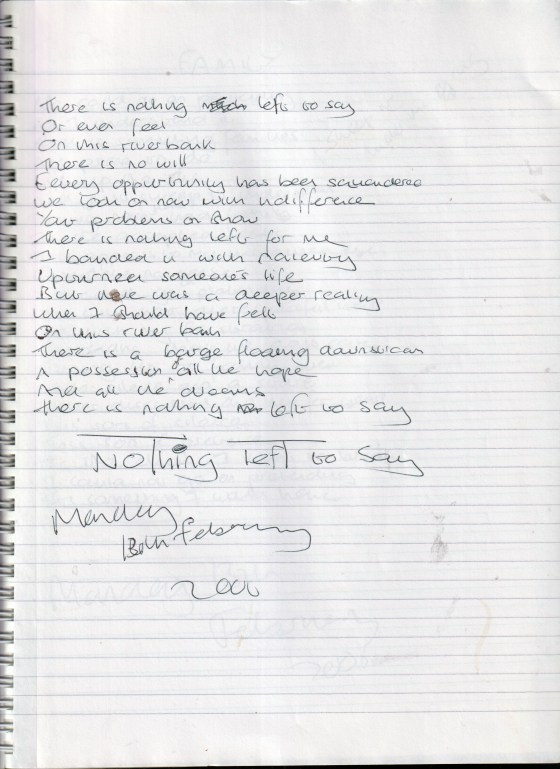 There is nothing left to say
Or even feel
On this riverbank
There is no will
Every oppurtunity has been squandered
We look on now with indifference
Your problems on show
There is nothing left for me
I bounded u with naievity
Upturned someone's life
But there was a deeper reality
When I should have felt
On this river bank
There is a barge floating downstream
A possession of all the hope
And all the dreams
There is nothing left to say
Nothing left to say
Monday
February
2000